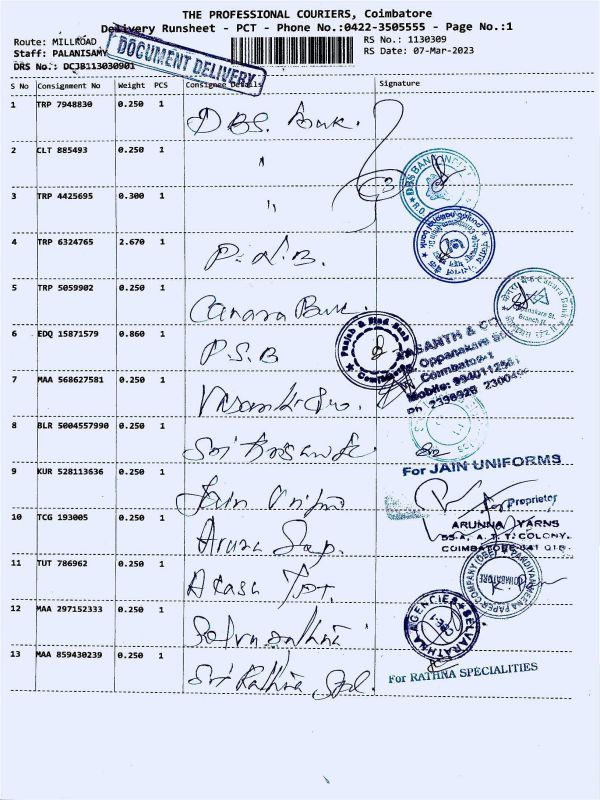 THE PROFESSIONAL COURIERS, Coimbatore
Delivery Runsheet - PCT - Phone No.:0422-3505555 - Page No.:1
Route: MILLROAD
RS No.: 1130309
Staff: PALANISAMY
RS Date: 07-Mar-2023
DOCUMENT DELIVERY
DRS No.: DCJB113030901
S No Consignment No Weight PCS Consignee Details Signature
1 TRP 7948830 0.250 1 DBS. Bank.
2 CLT 885493 0.250 1 "
3 TRP 4425695 0.300 1 "
DBS BANK
4 TRP 6324765 2.670 1 P. N. B.
punjab national bank
5 TRP 5059902 0.250 1 Canara Bank.
Canara Bank
Oppanakare St. Branch
6 EDQ 15871579 0.860 1 P.S.B
Punjab & Sind Bank
Coimbatore
VASANTH & CO
Oppanakare
Coimbatore-1
Mobile:
Ph
7 MAA 568627581 0.250 1
8 BLR 5004557990 0.250 1 Sri
For JAIN UNIFORMS
Proprietor
9 KUR 528113636 0.250 1 Jain
ARUNNA YARNS
A. T. T. COLONY,
COIMBATORE-641 018.
10 TCG 193005 0.250 1
11 TUT 786962 0.250 1
PAPER COMPANY (CBE)
COIMBATORE
12 MAA 297152333 0.250 1 Selvarathna
SELVARATHNA AGENCIES
CBE-1
13 MAA 859430239 0.250 1 Sri Rathna Spl.
For RATHNA SPECIALITIES